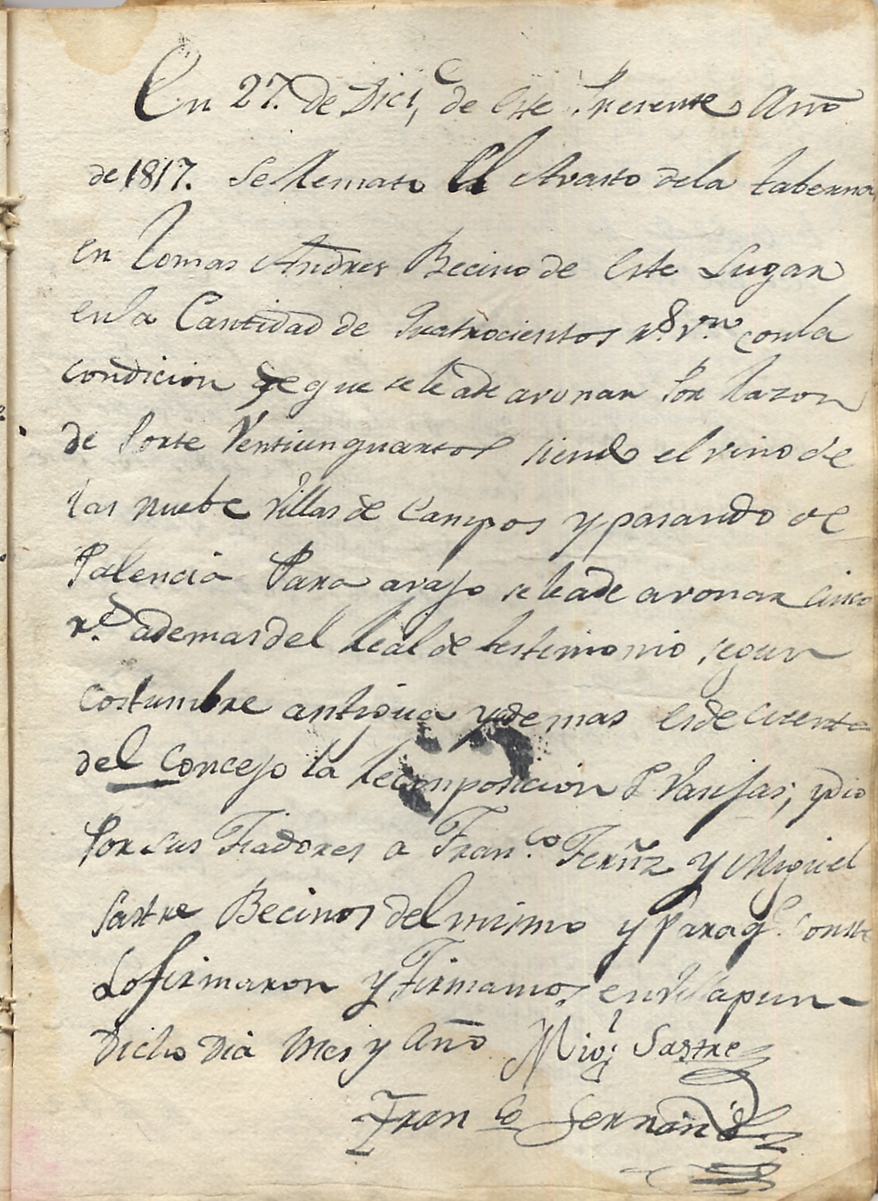 En 27. de Dici,e de Este Presente Año
de 1817. Se Remato El Avasto dela taberna
en tomas Andres Becino de Este Lugar
enla Cantidad de Quatrocientos rs. vn. conla
condicion de que se leade avonar Por Razon
de Porte Ventiunquartos siendo el vino de
las nuebe Villas de Campos y pasando de
Palencia Para avajo se leade avonar cinco
rs. ademas del Real de testimonio segun
costumbre antigua yademas esde cuenta
del Concejo la Recomposicion Vasijas, ydio
Por sus Fiadores a Fran.co Fernz y Miguel
Sastre Becinos del mismo y Paraq.e Conste
Lo firmaron y Firmamos en Villapun-
Dicho Dia Mes y Año Migl Sastre
Fran co Fernandz